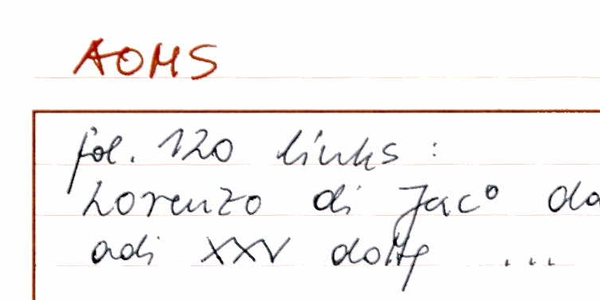 AOMS
fol. 120 links :
Lorenzo di Jacº da
adi XXV dottg ...